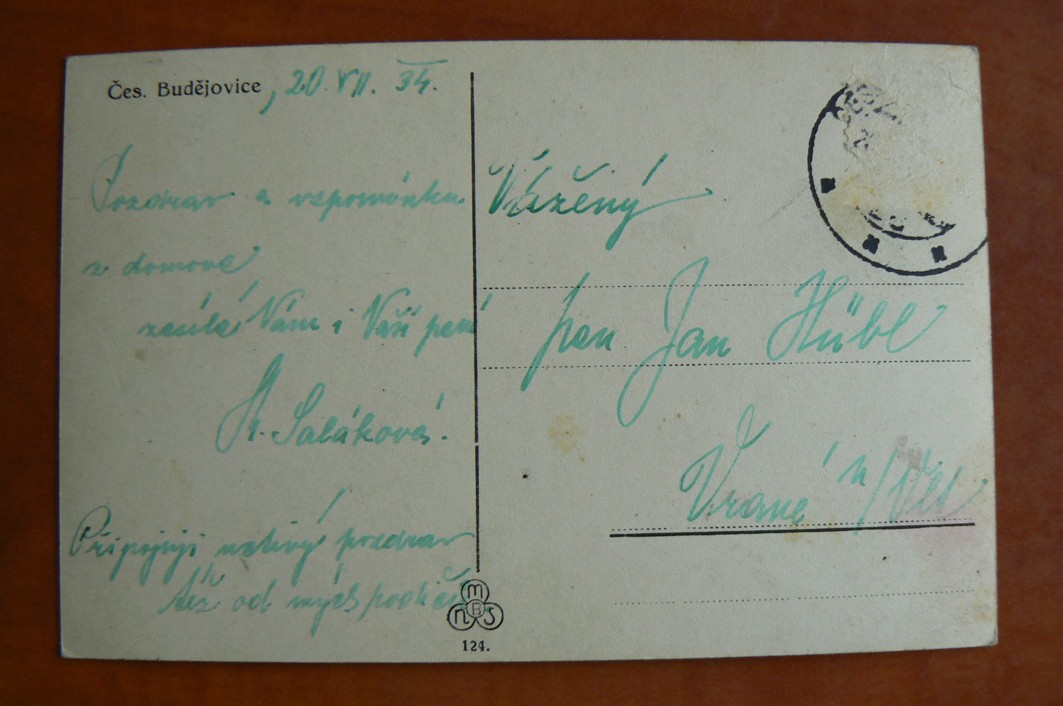 Čes. Budějovice, 20. VII. 34.
Pozdrav a vzpomínku
z domova
zasílá Vám i Vaší paní
Saláková.
Připojuji uctivý pozdrav
též od mých rodičů
Vážený
pan Jan Hübl
Vrané n/Vlt
M
B
N S
124.